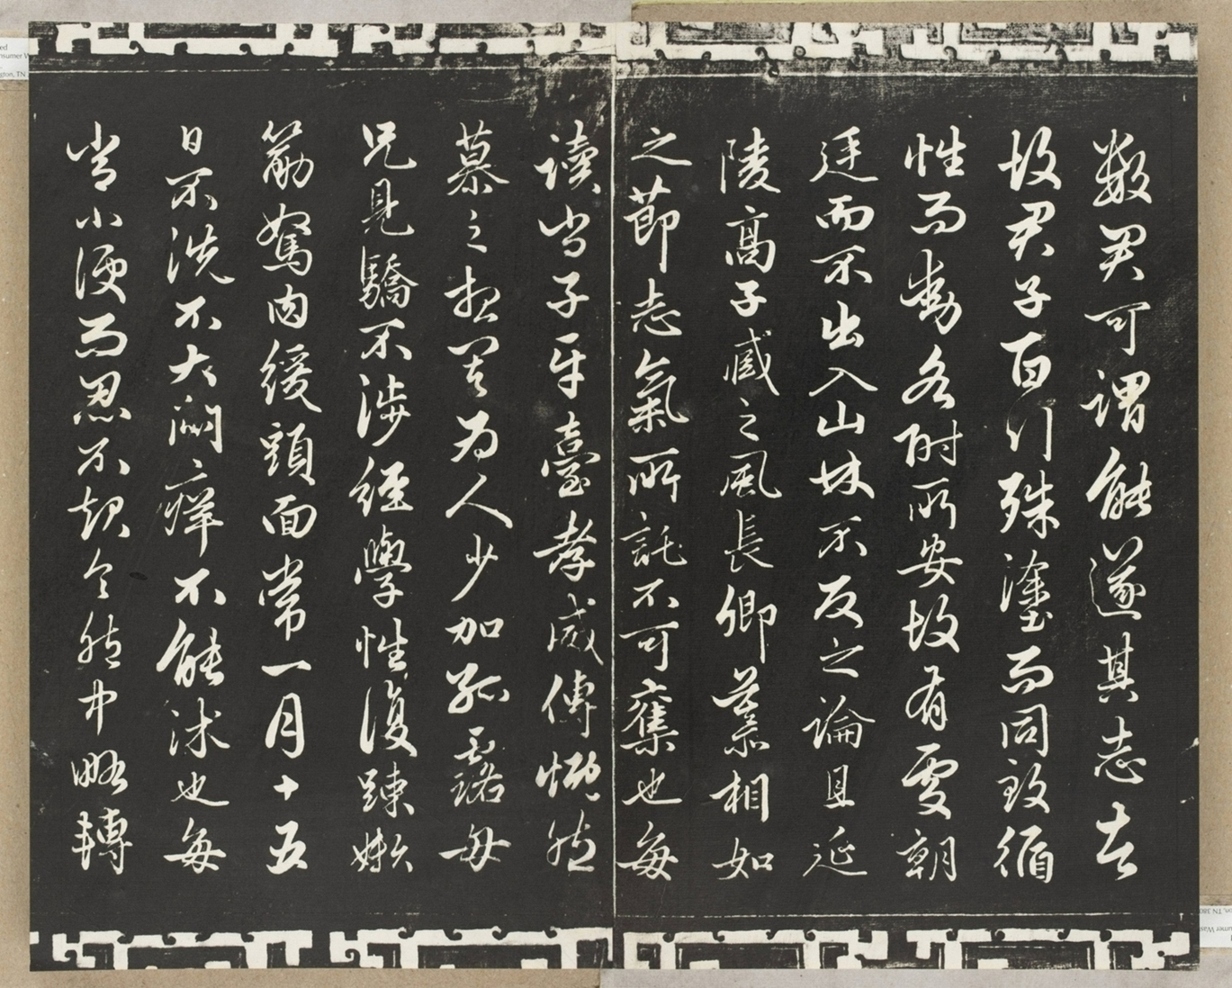 數君可謂能遂其志者
故君子百行殊塗而同致循
性而動各附所安故有處朝
廷而不出入山林不反之論且延
陵高子臧之風長卿慕相如
之節志氣所託不可奪也每
讀尚子平臺孝威傳慨然
慕之想其為人少加孤露母
兄見驕不涉經學性復踈嬾
筋駑肉緩頭面常一月十五
日不洗不大悶癢不能沐也每
尚小便而忍不起令胞中略轉